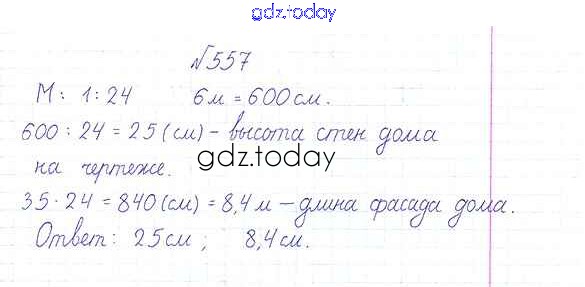 gdz.today
№557
М: 1:24 6м = 600 см.
600 : 24 = 25 (см) - высота стен дома
на чертеже.
gdz.today
35 · 24 = 840 (см) = 8,4 м - длина фасада дома.
Ответ: 25 см; 8,4 см.